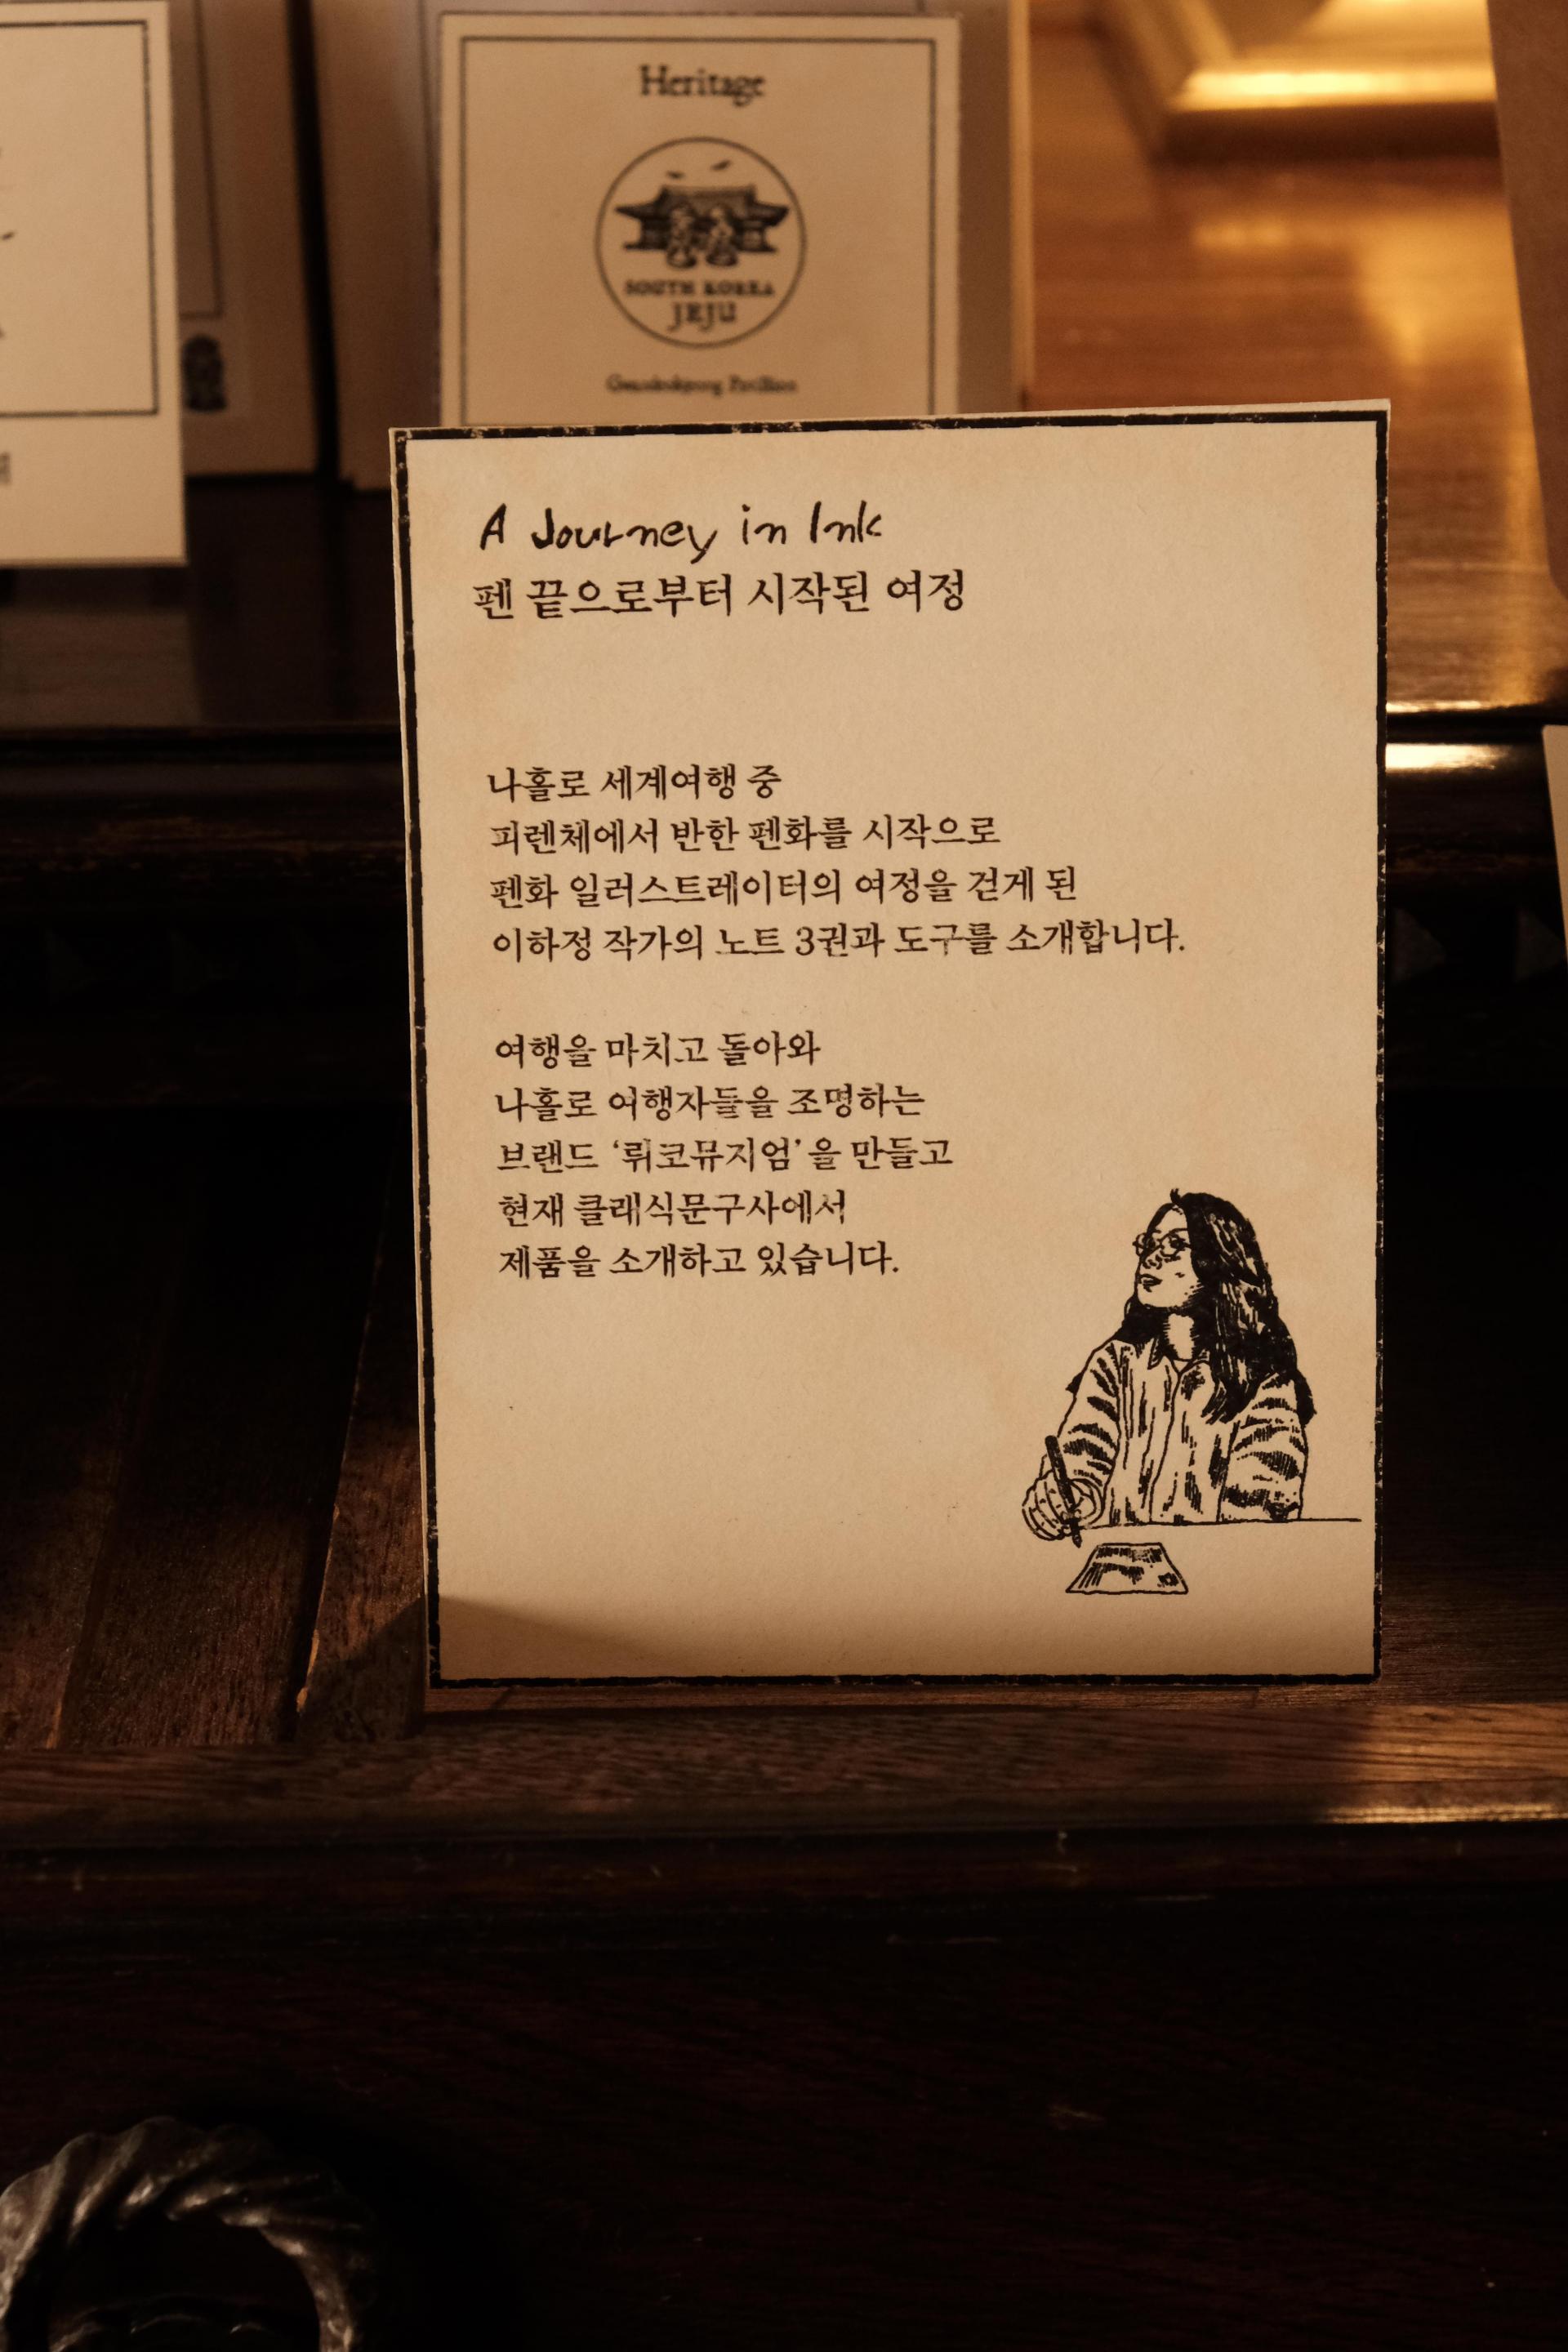 Heritage
SOUTH KOREA
JEJU
Pavillion
A Journey in Ink
펜 끝으로부터 시작된 여정
나홀로 세계여행 중
피렌체에서 반한 펜화를 시작으로
펜화 일러스트레이터의 여정을 걷게 된
이하정 작가의 노트 3권과 도구를 소개합니다.
여행을 마치고 돌아와
나홀로 여행자들을 조명하는
브랜드 ‘뤼코뮤지엄’을 만들고
현재 클래식문구사에서
제품을 소개하고 있습니다.